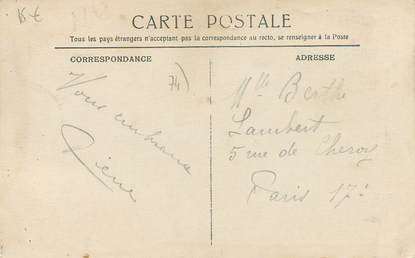 15 €
CARTE POSTALE
Tous les pays étrangers n'acceptant pas la correspondance au recto, se renseigner à la Poste
CORRESPONDANCE
ADRESSE
74)
Vous embrasse
Mlle Berthe
Lambert
5 rue de Cheroy
Paris 17: